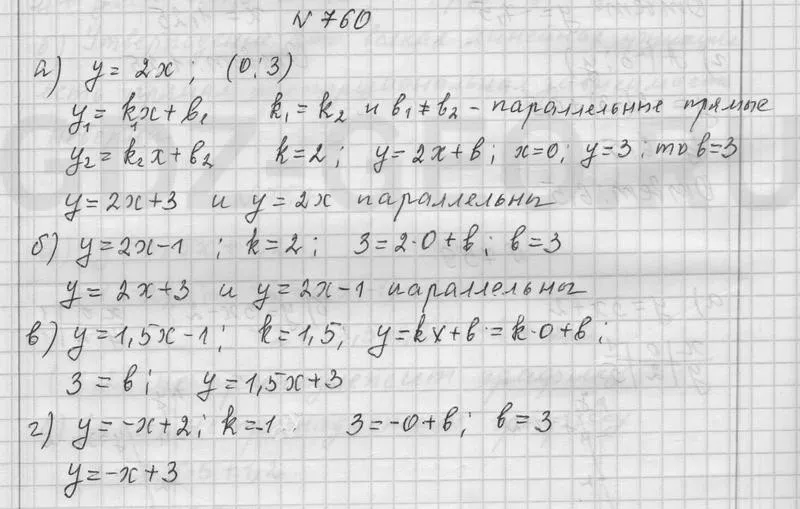 N 760
а) y = 2x ; (0; 3)
y₁ = k₁x + b₁ k₁ = k₂ и b₁ ≠ b₂ - параллельные прямые
y₂ = k₂x + b₂ k = 2 ; y = 2x + b ; x = 0; y = 3 ; то b = 3
y = 2x + 3 и y = 2x параллельны
б) y = 2x - 1 ; k = 2 ; 3 = 2·0 + b ; b = 3
y = 2x + 3 и y = 2x - 1 параллельны
в) y = 1,5x - 1 ; k = 1,5 ; y = kx + b = k·0 + b ;
3 = b ; y = 1,5x + 3
г) y = -x + 2 ; k = -1 .. 3 = -0 + b ; b = 3
y = -x + 3